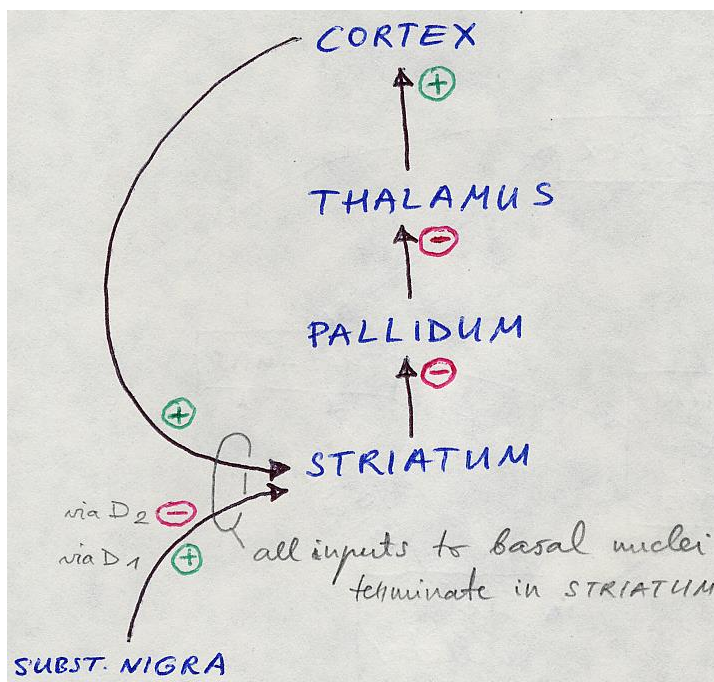 CORTEX
+
THALAMUS
-
PALLIDUM
-
+
STRIATUM
via D2 -
via D1 +
all inputs to basal nuclei
terminate in STRIATUM
SUBST. NIGRA